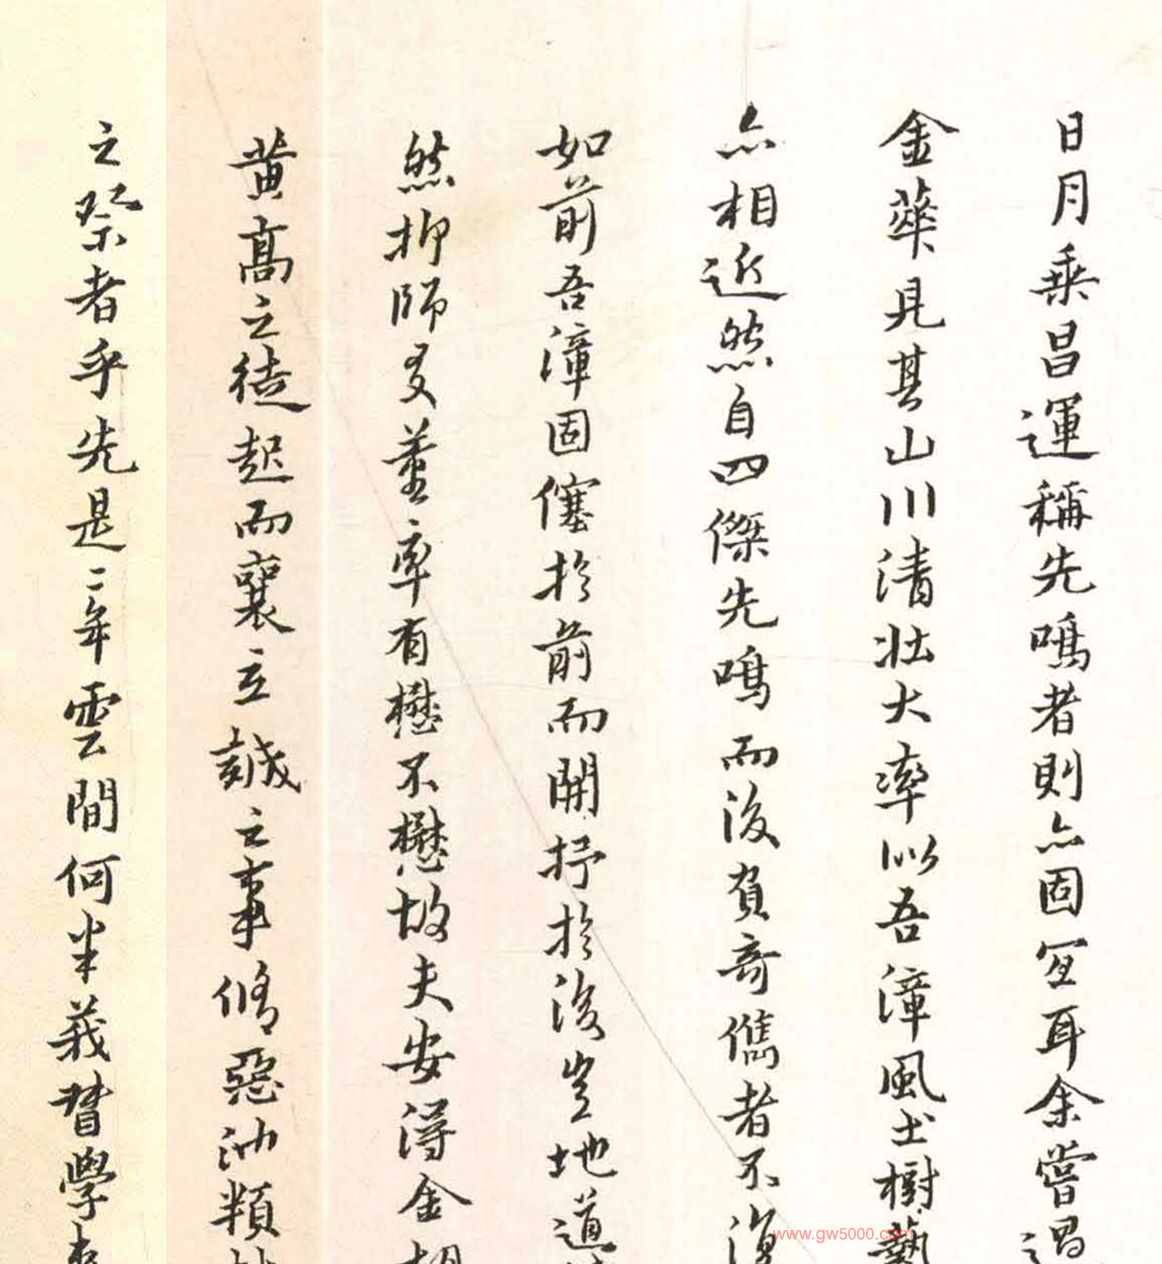 日月乗昌運稱先鳴者則亦固宜耳余嘗過
金華見其山川清壮大率似吾漳風土樹藝
亦相近然自四傑先鳴而後負奇儁者不復
如前吾漳固僿於前而開抒於後豈地道
然抑師友董率有懋不懋故夫安得金胡
黄高之徒起而襄立誠之事脩惡沕類
之祭者乎先是二年雲間何半莪督學
www.gw5000.com